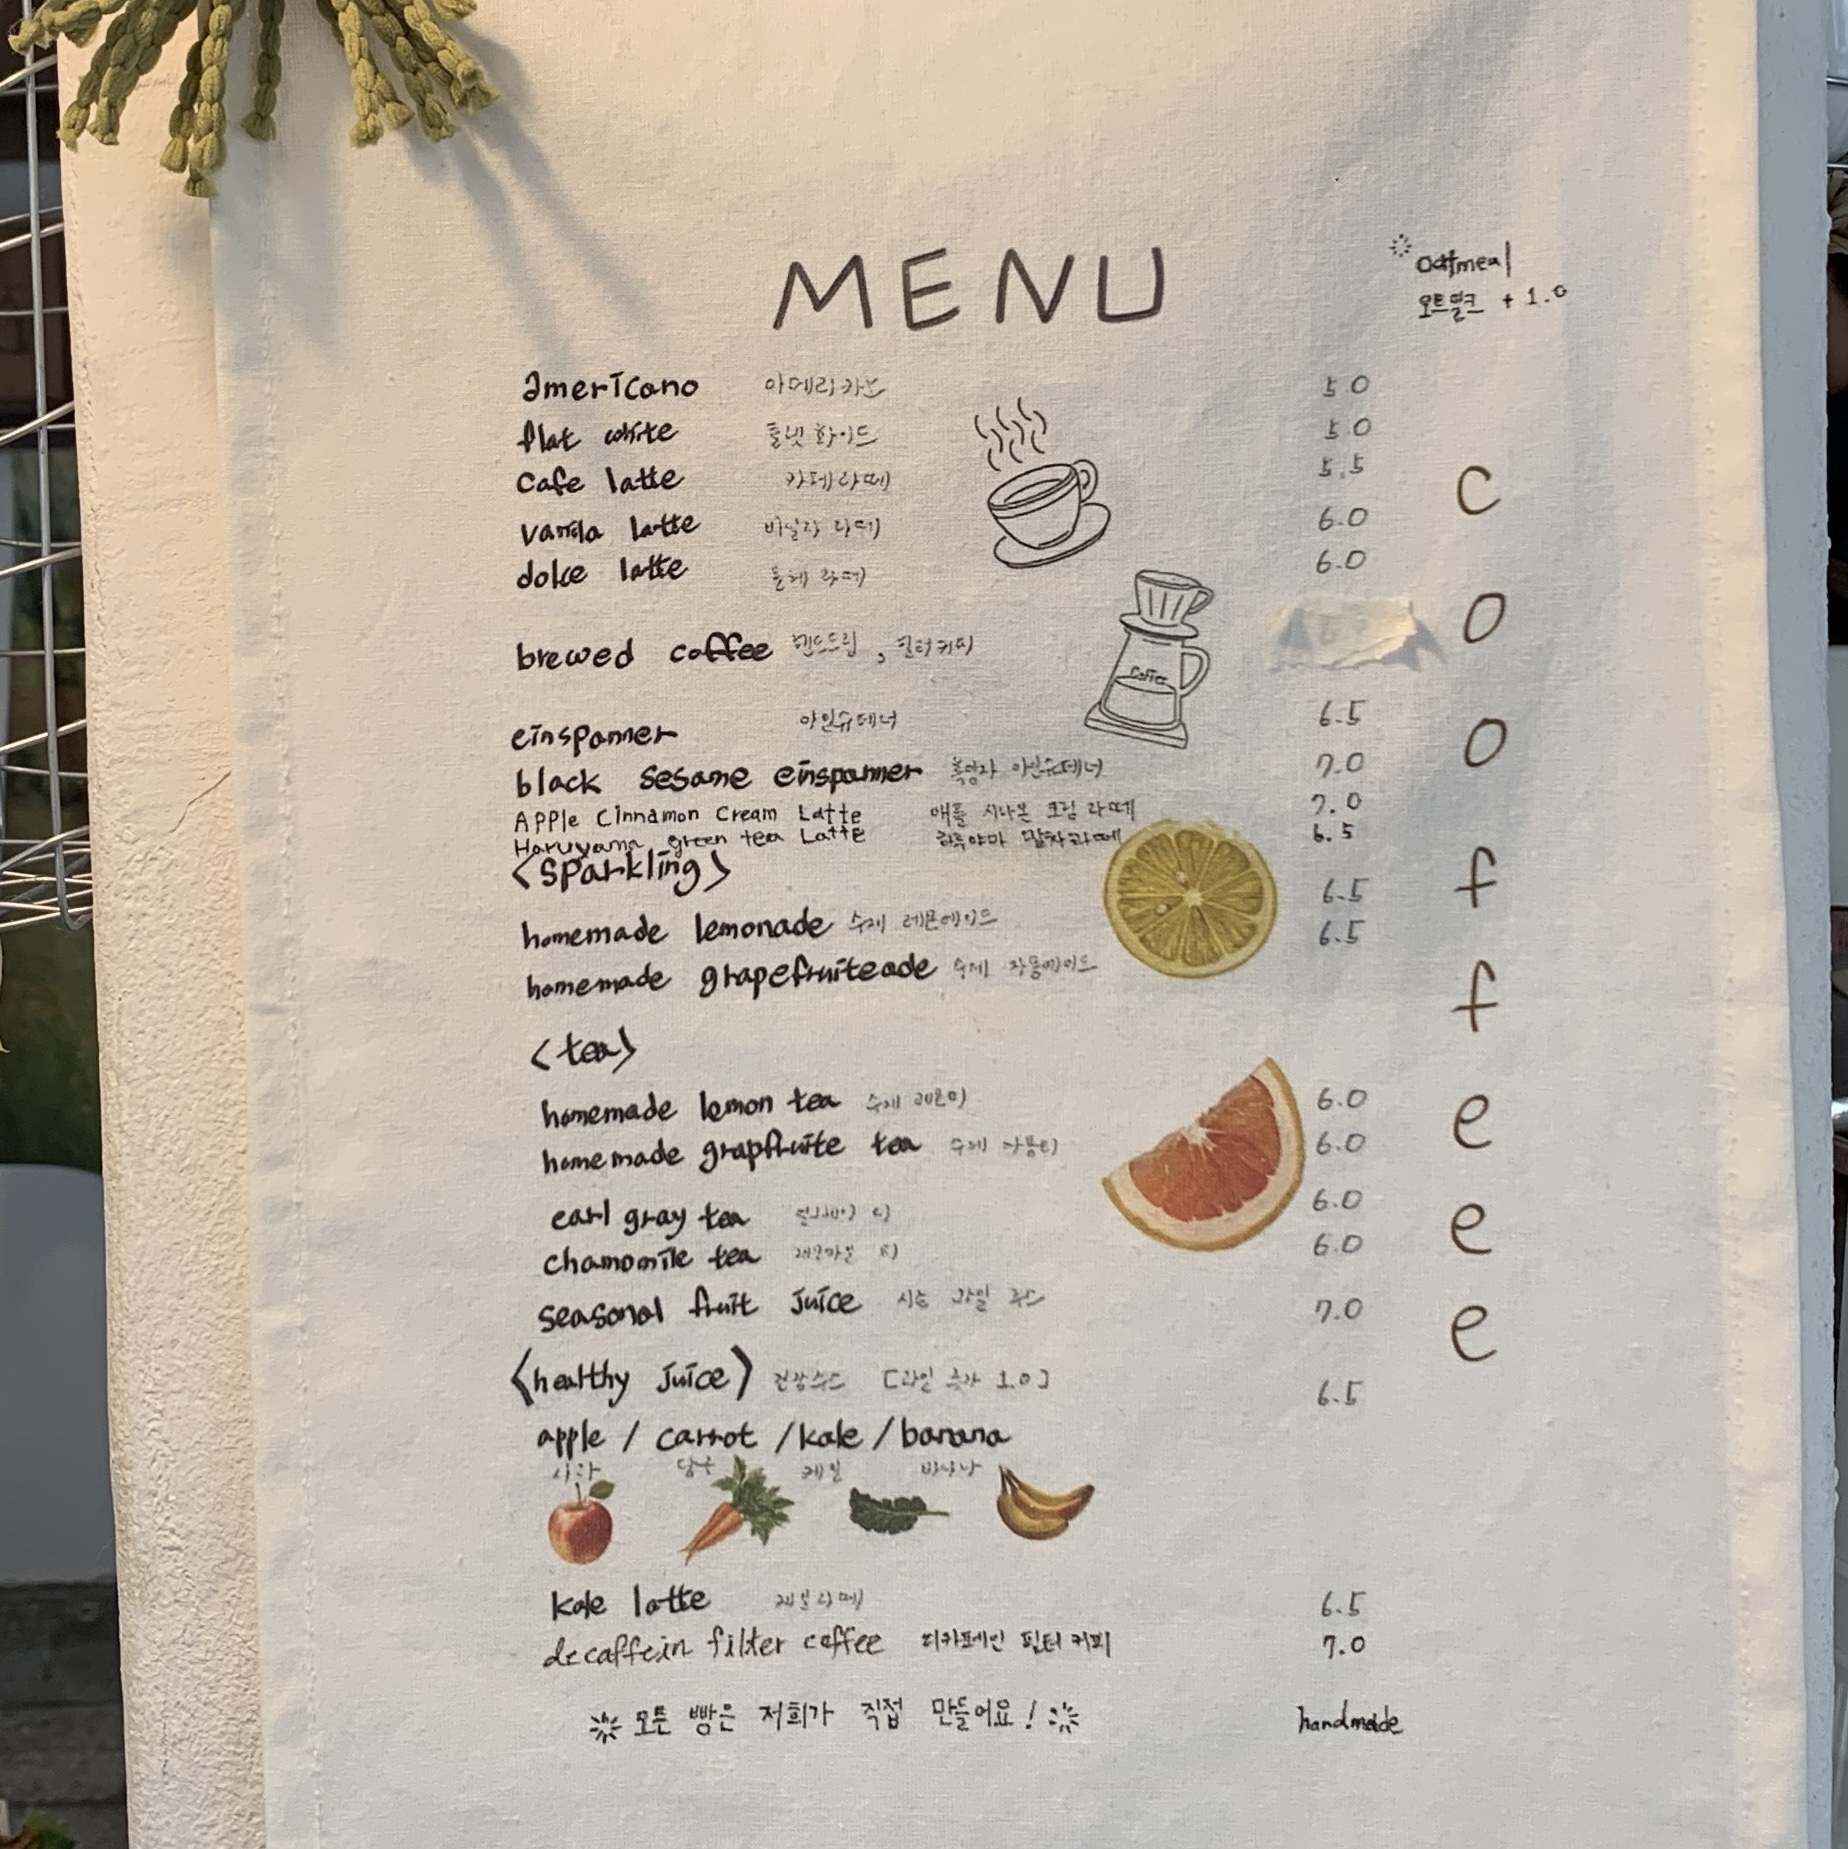 MENU
oatmeal
오트밀크 + 1.0
americano 아메리카노 5.0
flat white 플랫 화이트 5.0
cafe latte 카페라떼 5.5
vanila latte 바닐라 라떼 6.0
dolce latte 돌체 라떼 6.0
brewed coffee 핸드드립 , 필터커피
Coffee
einspanner 아인슈페너 6.5
black sesame einspanner 흑임자 아인슈페너 7.0
APPle Cinnamon Cream Latte 애플 시나몬 크림 라떼 7.0
Haruyama green tea Latte 하루야마 말차라떼 6.5
<sparkling> 6.5
homemade lemonade 수제 레몬에이드 6.5
homemade grapefruiteade 수제 자몽에이드
<tea>
homemade lemon tea 수제 레몬티 6.0
homemade grapfruite tea 수제 자몽티 6.0
earl gray tea 얼그레이 티 6.0
chamomile tea 캐모마일 티 6.0
seasonal fruit juice 시즌 과일 쥬스 7.0
<healthy juice> 건강쥬스 [과일 추가 1.0] 6.5
apple / carrot / kale / banana
사과 당근 케일 바나나
kale latte 케일라떼 6.5
decaffein filter coffee 디카페인 필터 커피 7.0
모든 빵은 저희가 직접 만들어요! handmade
c
o
o
f
f
e
e
e